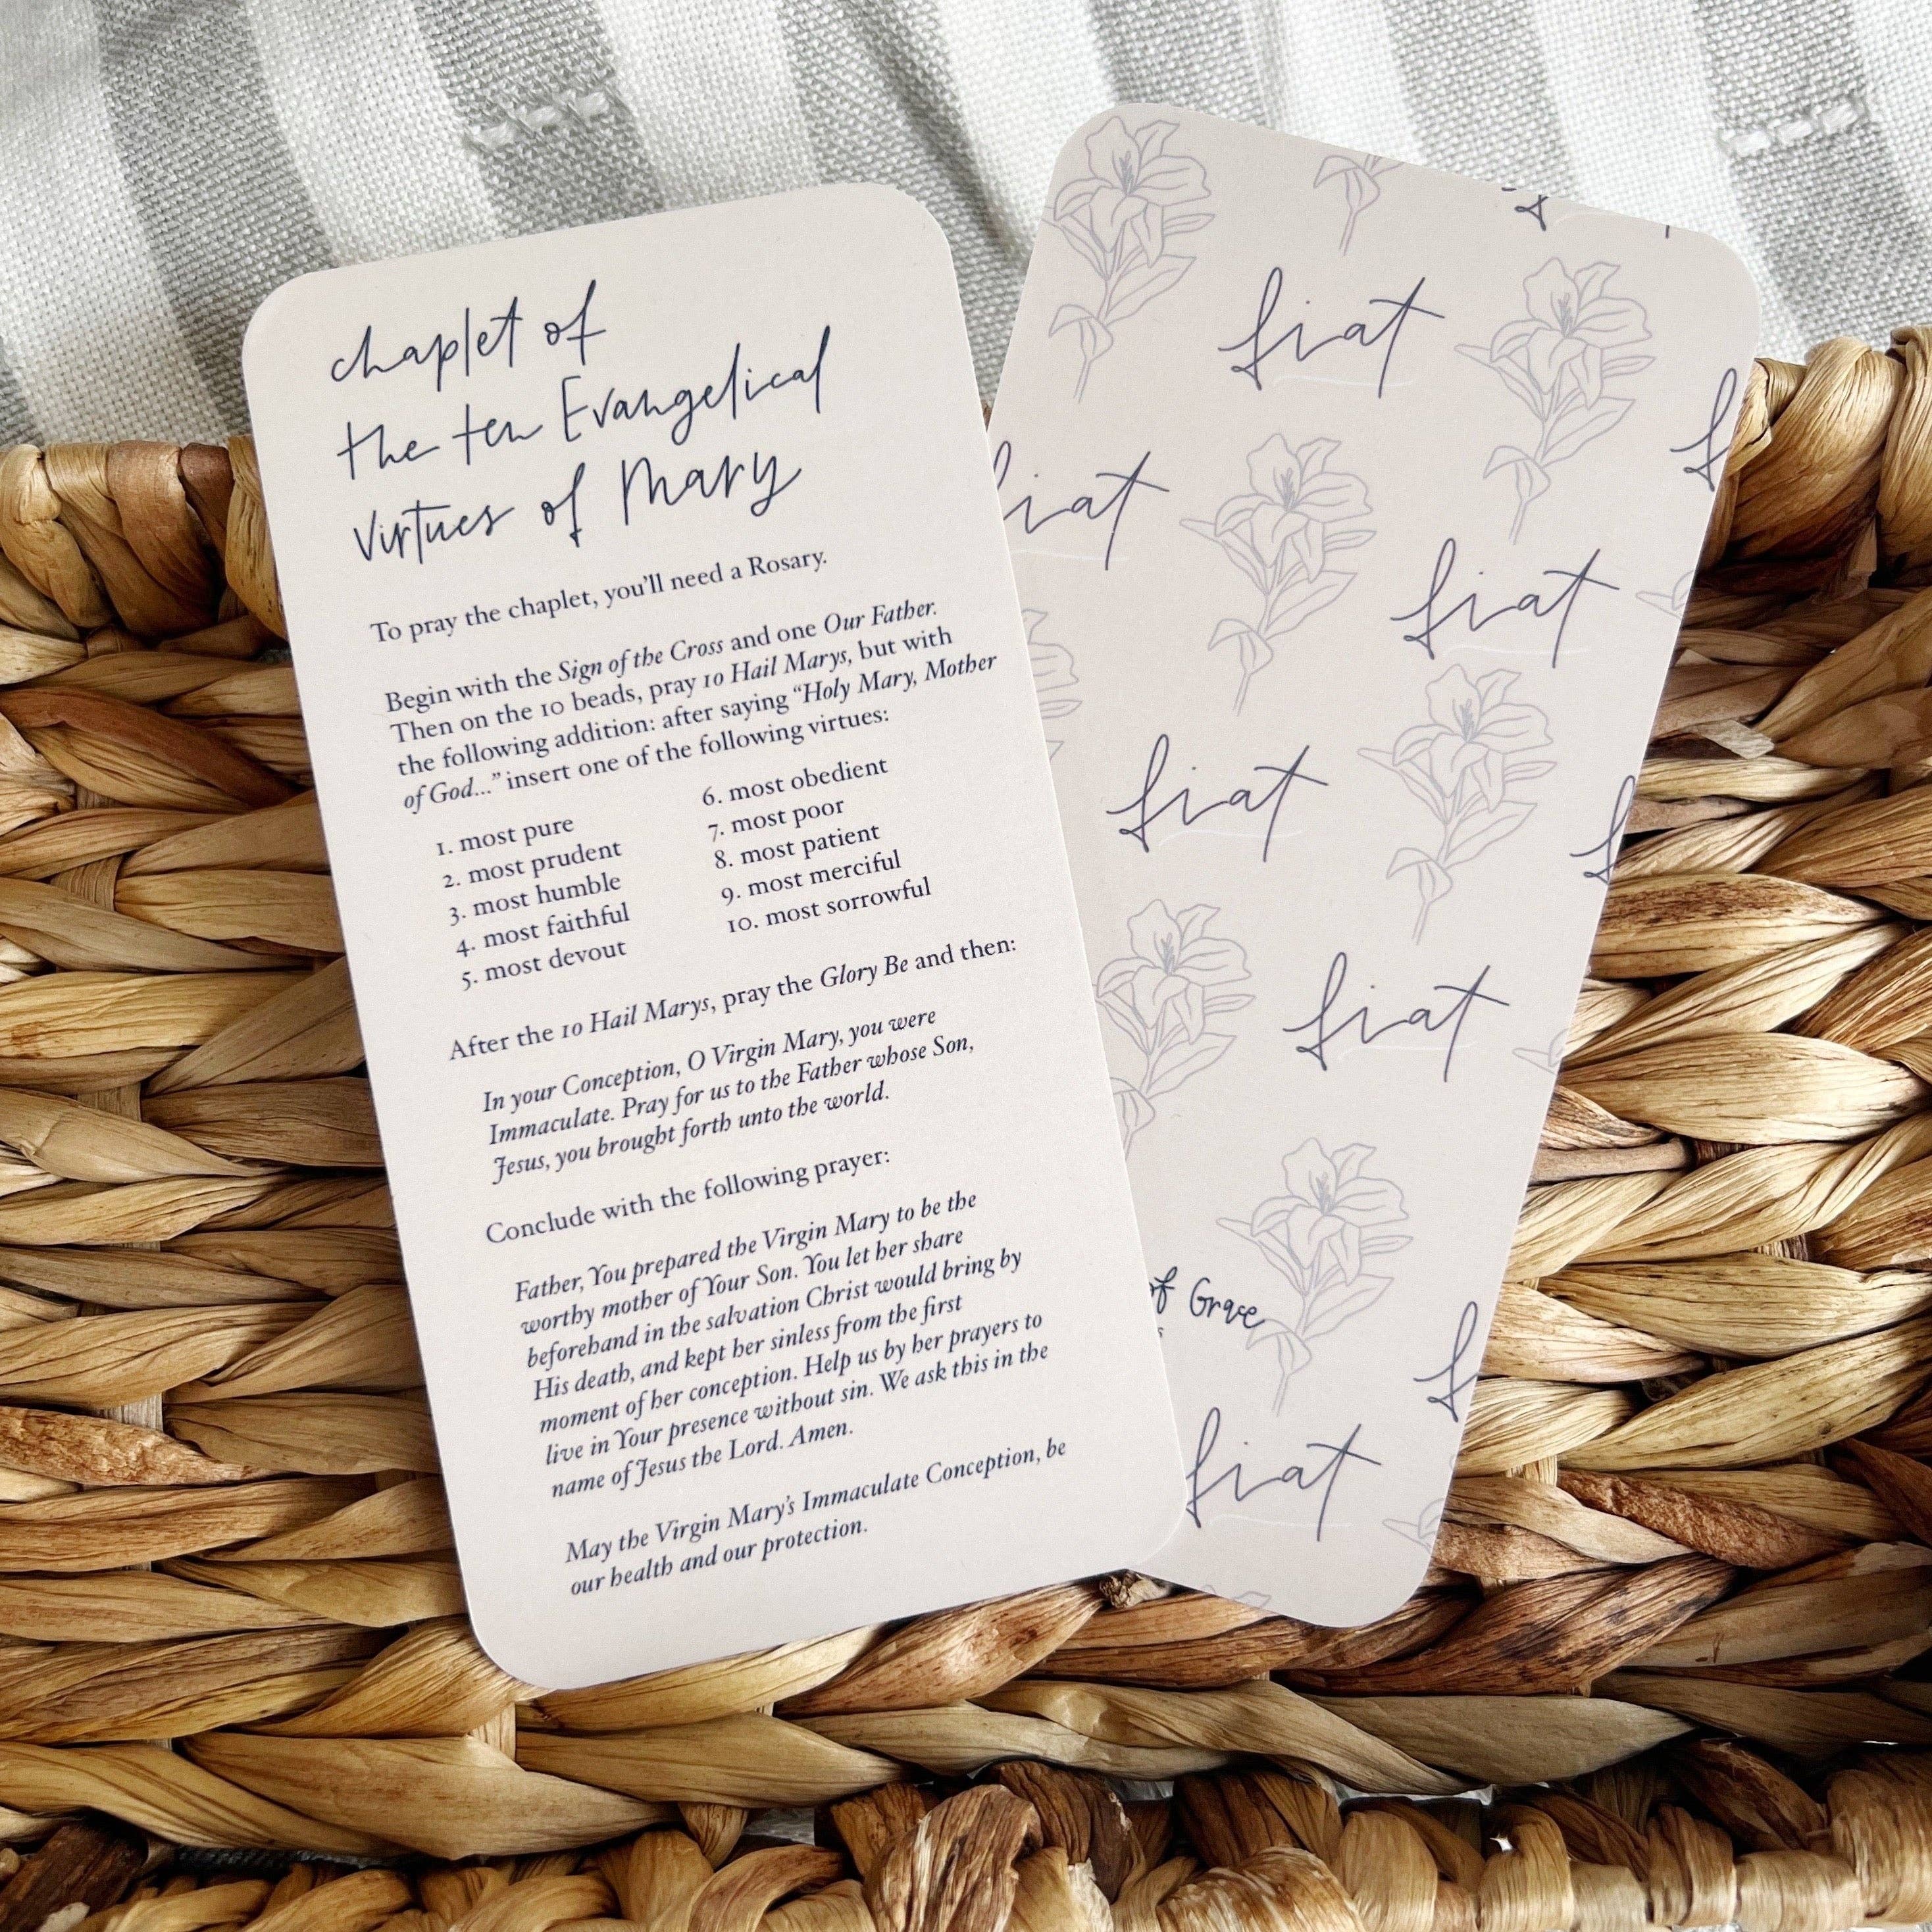 chaplet of
the ten Evangelical
virtues of Mary
To pray the chaplet, you'll need a Rosary.
Begin with the Sign of the Cross and one Our Father.
Then on the 10 beads, pray 10 Hail Marys, but with
the following addition: after saying “Holy Mary, Mother
of God...” insert one of the following virtues:
1. most pure
2. most prudent
3. most humble
4. most faithful
5. most devout
6. most obedient
7. most poor
8. most patient
9. most merciful
10. most sorrowful
After the 10 Hail Marys, pray the Glory Be and then:
In your Conception, O Virgin Mary, you were
Immaculate. Pray for us to the Father whose Son,
Jesus, you brought forth unto the world.
Conclude with the following prayer:
Father, You prepared the Virgin Mary to be the
worthy mother of Your Son. You let her share
beforehand in the salvation Christ would bring by
His death, and kept her sinless from the first
moment of her conception. Help us by her prayers to
live in Your presence without sin. We ask this in the
name of Jesus the Lord. Amen.
May the Virgin Mary's Immaculate Conception, be
our health and our protection.
fiat
fiat
fiat
fiat
fiat
of Grace
fiat